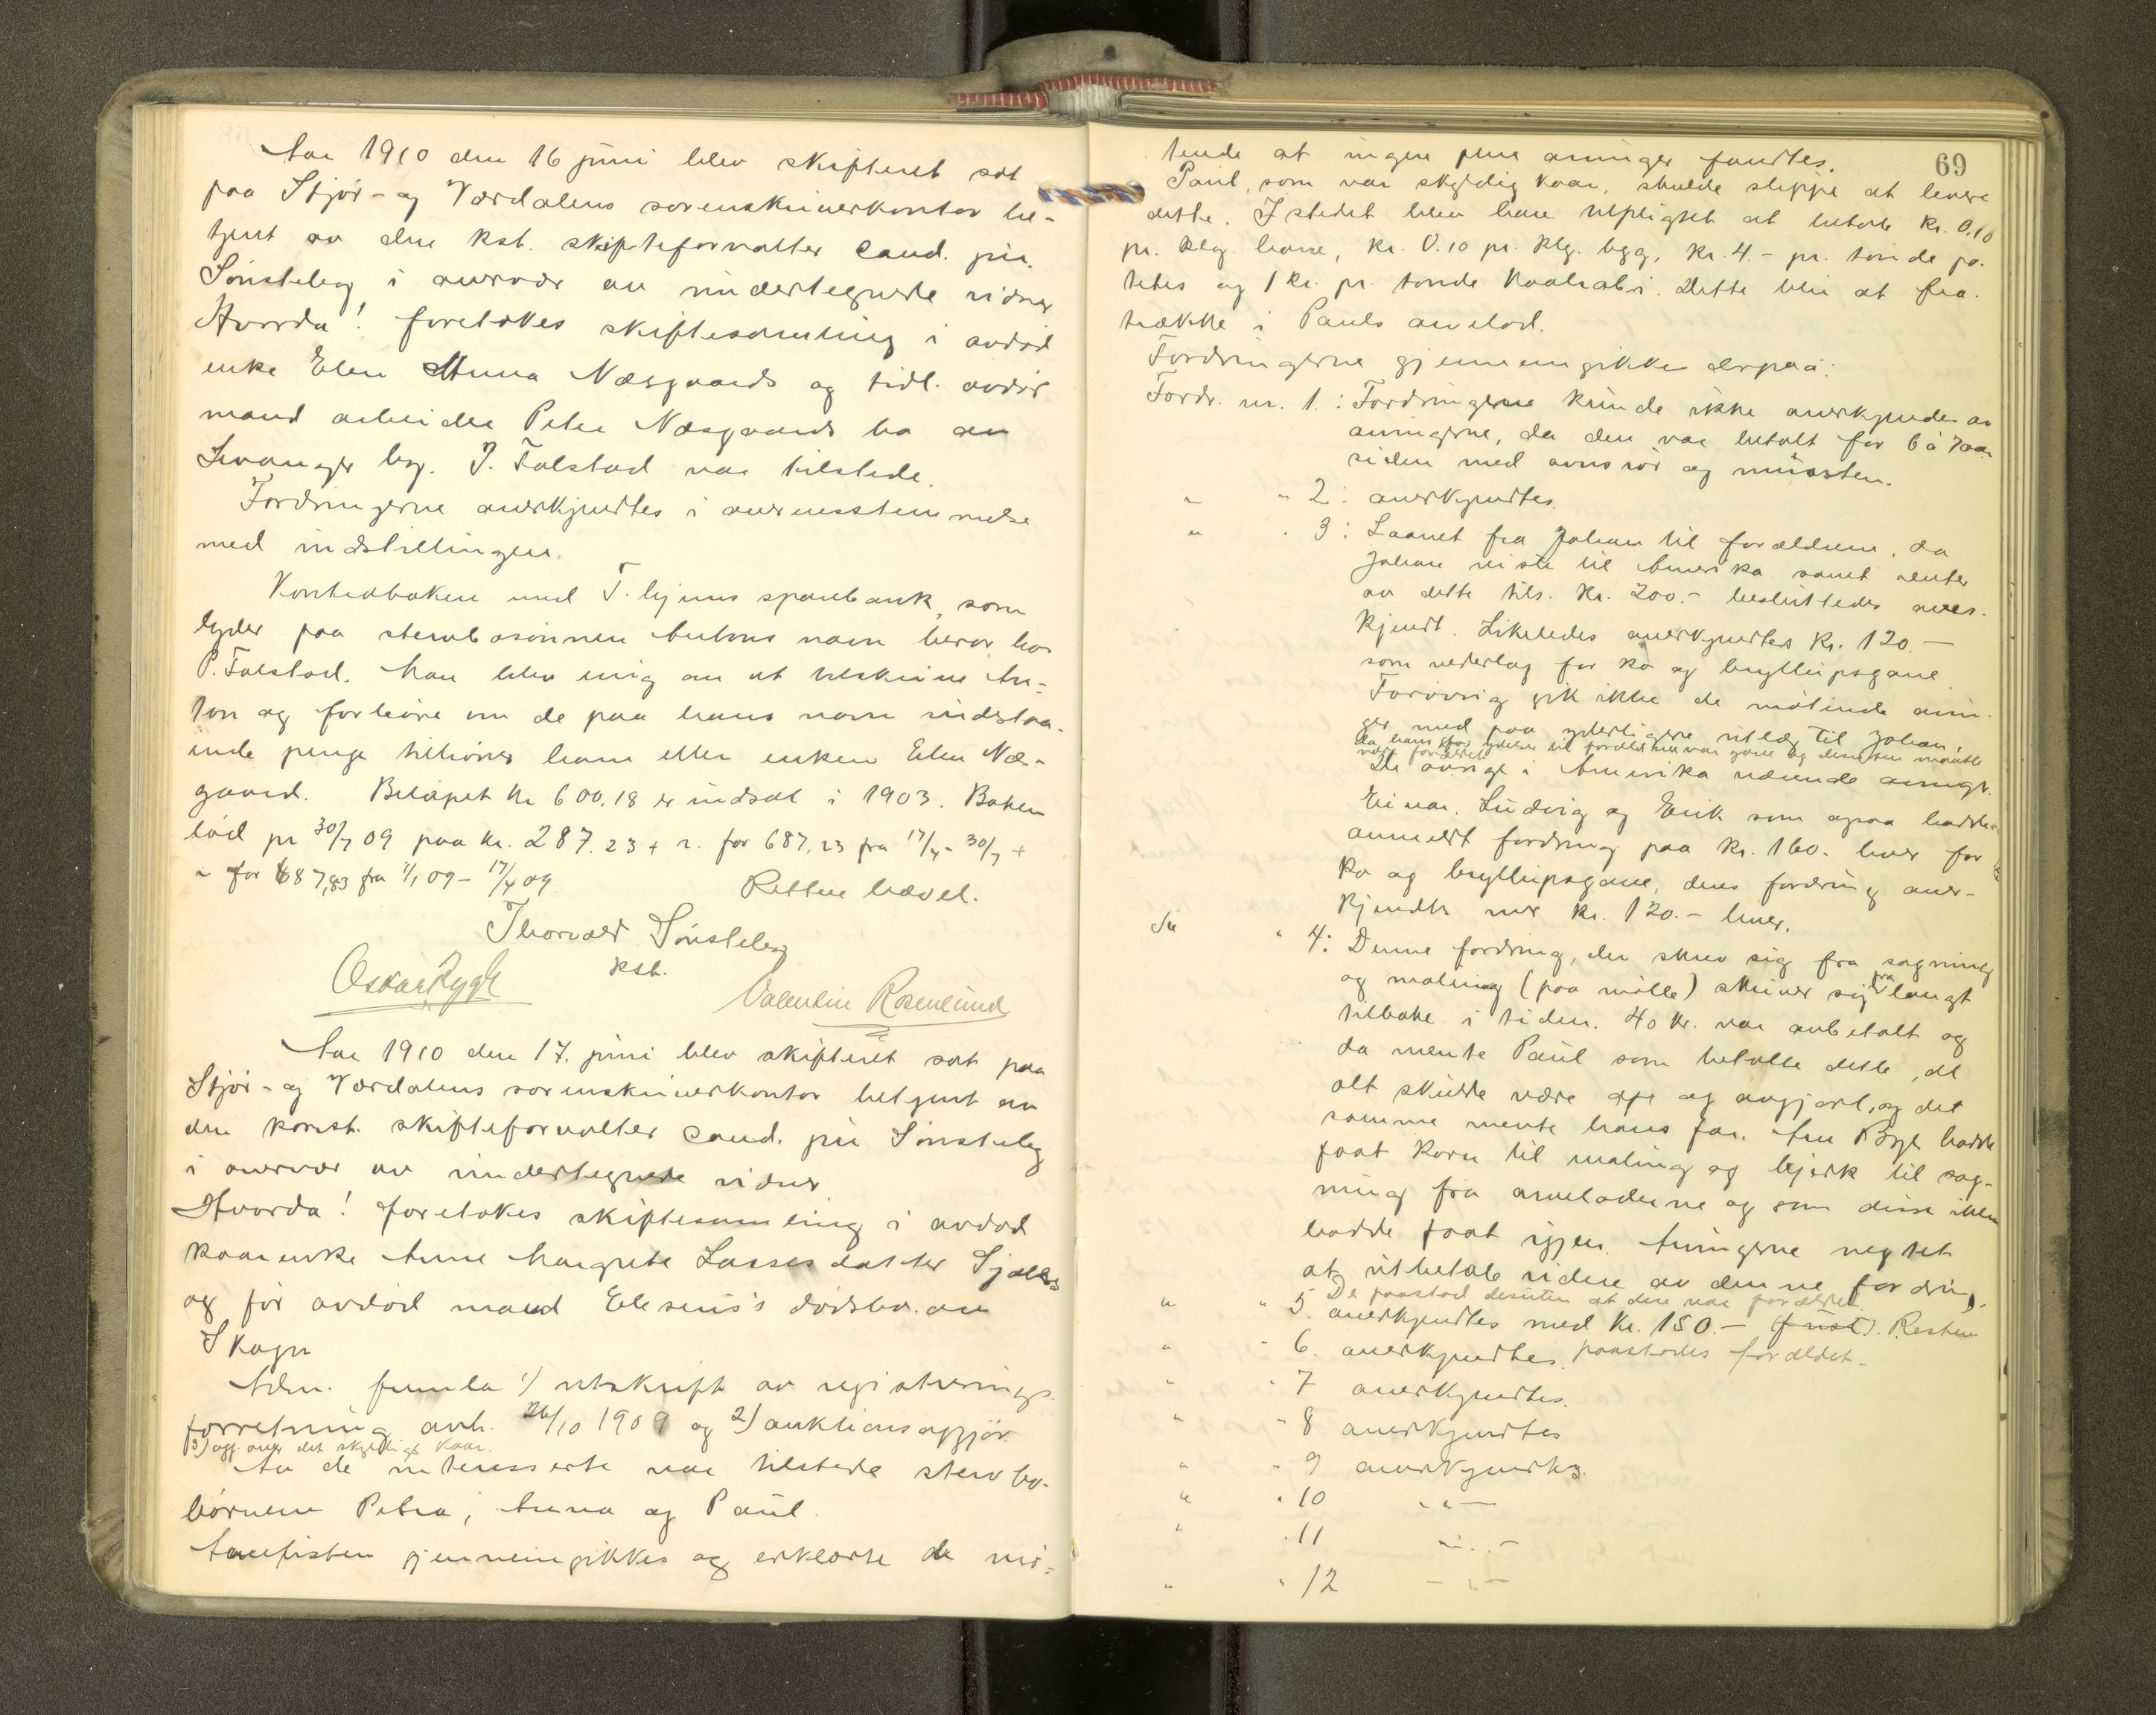 Aar 1910 den 16 juni blev skifteret sat
paa Stjør- og Værdalens sorenskriverkontor be-
tjent av den kst. skifteforvalter cand. jur.
Sønsteby i overvær av undertegnede vidner
Hvorda! foretokes skiftesamling i avdød
enke Elen Anna Næsgaards og tidl. avdøde
mand arbeider Peter Næsgaards bo av
Levanger by. J. Falstad var tilstede.
Fordringerne anerkjendtes i overensstemmelse
med indstillingen.
Kontraboken med T.hjems sparebank, som
lyder paa stervbosønnen Antons navn beror hos
P. Falstad. Man blev enig om at tilskrive An-
ton og forhøre om de paa hans navn indstaa-
ende penge tilhører ham eller enken Elen Næs-
gaard. Beløpet kr 600.18 er indsat i 1903. Boken
lød pr 30/7 09 paa kr. 287.23 + r. for 687.23 fra 17/4 - 30/7 +
r for 687,83 fra 1/1 09 - 17/4 09. Retten hævet.
Thorvald Sønsteby
kst.
Oskar Rygh Valentin Rosenlund
Aar 1910 den 17. juni blev skifteret sat paa
Stjør- og Værdalens sorenskriverkontor betjent av
den konst. skifteforvalter cand. jur Sønsteby
i overvær av undertegnede vidner
Hvorda! foretokes skiftesamling i avdød
kaarenke Anne Margrete Lassesdatter
og før avdød mand Eleseus's dødsbo. av
Skogn
Adm. fremla 1) utskrift av registrerings-
forretning avh. 26/10 1909 og 2) auktionsopgjør
3) opg. over det skyldige kaar.
Av de interesserte var tilstede stervbo-
børnene Petra, Anna og Paul.
Arvelisten gjennemgikkes og erklærte de mø-
69
tende at ingen flere arvinger fandtes.
Paul, som var skyldig kaar, skulde slippe at levere
dette. I stedet blev han tilpligtet at betale kr. 0.10
pr. klg. havre, kr. 0.10 pr. klg. byg, kr. 4.- pr. tønde po-
tetes og 1 kr. pr. tønde kaalrabi. Dette blir at fra-
trække i Pauls arvelod.
Fordringerne gjennemgikkes derpaa:
Fordr. nr. 1.: Fordringerne kunde ikke anerkjendes av
arvingerne, da den var betalt for 6 à 7 aar
siden med ovnsrør og mursten.
" " 2: anerkjendtes.
" " 3: Laanet fra Johan til forældrene, da
Johan reiste til Amerika samt renter
av dette tils. kr. 200.- besluttedes aner-
kjendt. Likeledes anerkjendtes kr. 120.-
som vederlag for ko og bryllupsgave.
Forøvrig gik ikke de møtende arvin-
ger med paa yderligere utlæg til Johan,
da hans øvr. ydelser til forældrene var gave og desuten maatte
være forældet
De øvrige i Amerika værende arvinger
Einar, Ludvig og Erik som ogsaa hadde
anmeldt fordring paa kr. 160.- hver for
ko og bryllupsgave, deres fordring aner-
kjendtes med kr. 120.- hver.
" 4: Denne fordring, der skrev sig fra sagning
og maling (paa mølle) skriver sig fra langt
tilbake i tiden. 40 kr. var avbetalt og
da mente Paul som betalte dette, at
alt skulde være op og avgjort, og det
samme mente hans far. Arn Bye hadde
faat korn til maling og bjørk til sag-
ning fra arveladerne og som disse ikke
hadde faat igjen. Arvingerne negtet
at utbetale videre av denne fordring.
De paastod desuten at den var forældet
" " 5. anerkjendtes med kr. 150.- Resten
" " 6. anerkjendtes. paastodes forældet.
" " 7 anerkjendtes.
" " 8 anerkjendtes
" " 9 anerkjendtes.
" " 10 -"-
" " 11 -"-
" " 12 -"-